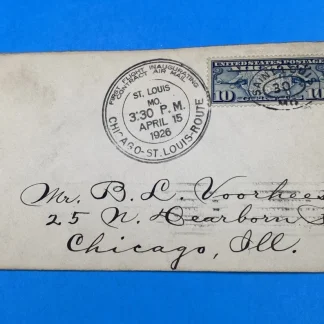 FIRST FLIGHT INAUGURATING
CONTRACT AIR MAIL
ST. LOUIS
MO.
3:30 P.M.
APRIL 15
1926
CHICAGO-ST. LOUIS-ROUTE
UNITED STATES POSTAGE
10 10
SAINT
30
MO.
Mr. B. L. Voorhees
25 N. Dearborn
Chicago, Ill.